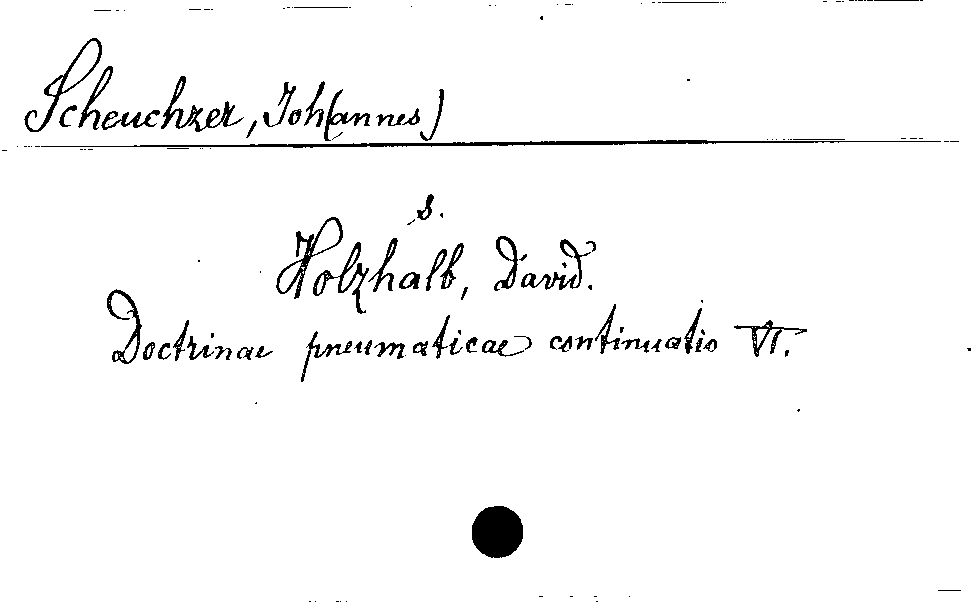 Scheuchzer, Joh(annes)
s.
Holzhalb, David.
Doctrinae pneumaticae continuatio VI.